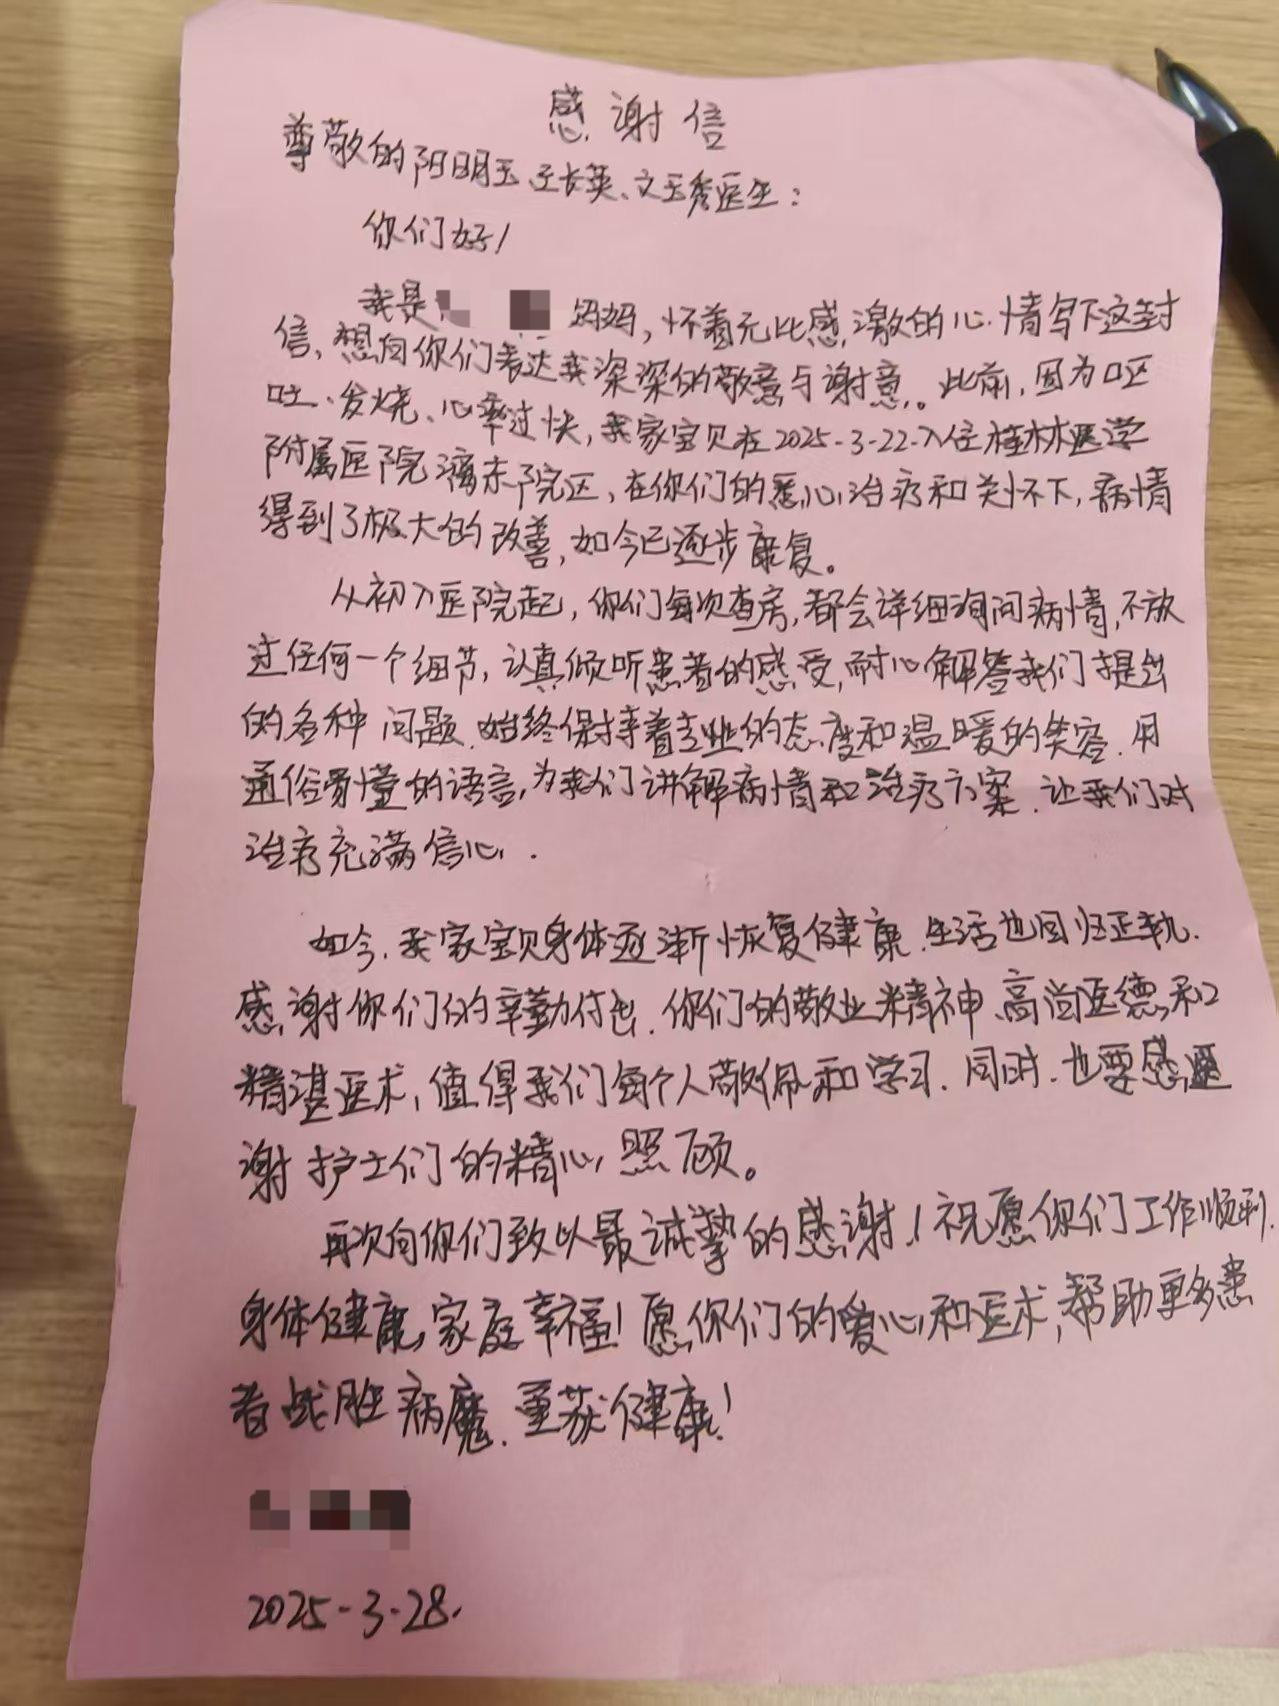 感谢信
尊敬的阳明玉、王长英、文玉秀医生：
你们好！
我是 妈妈，怀着无比感激的心情写下这封
信，想向你们表达我深深的敬意与谢意。此前，因为呕
吐、发烧、心率过快，我家宝贝在2025-3-22入住桂林医学
附属医院漓东院区，在你们的悉心治疗和关怀下，病情
得到了极大的改善，如今已逐步康复。
从初入医院起，你们每次查房，都会详细询问病情，不放
过任何一个细节，认真倾听患者的感受，耐心解答我们提出
的各种问题，始终保持着专业的态度和温暖的笑容，用
通俗易懂的语言，为我们讲解病情和治疗方案，让我们对
治疗充满信心．
如今，我家宝贝身体逐渐恢复健康，生活也回归正轨．
感谢你们的辛勤付出，你们的敬业精神、高尚医德和
精湛医术，值得我们每个人敬佩和学习．同时，也要感
谢护士们的精心照顾。
再次向你们致以最诚挚的感谢！祝愿你们工作顺利，
身体健康，家庭幸福！愿你们的爱心和医术，帮助更多患
者战胜病魔，重获健康！
2025-3-28.